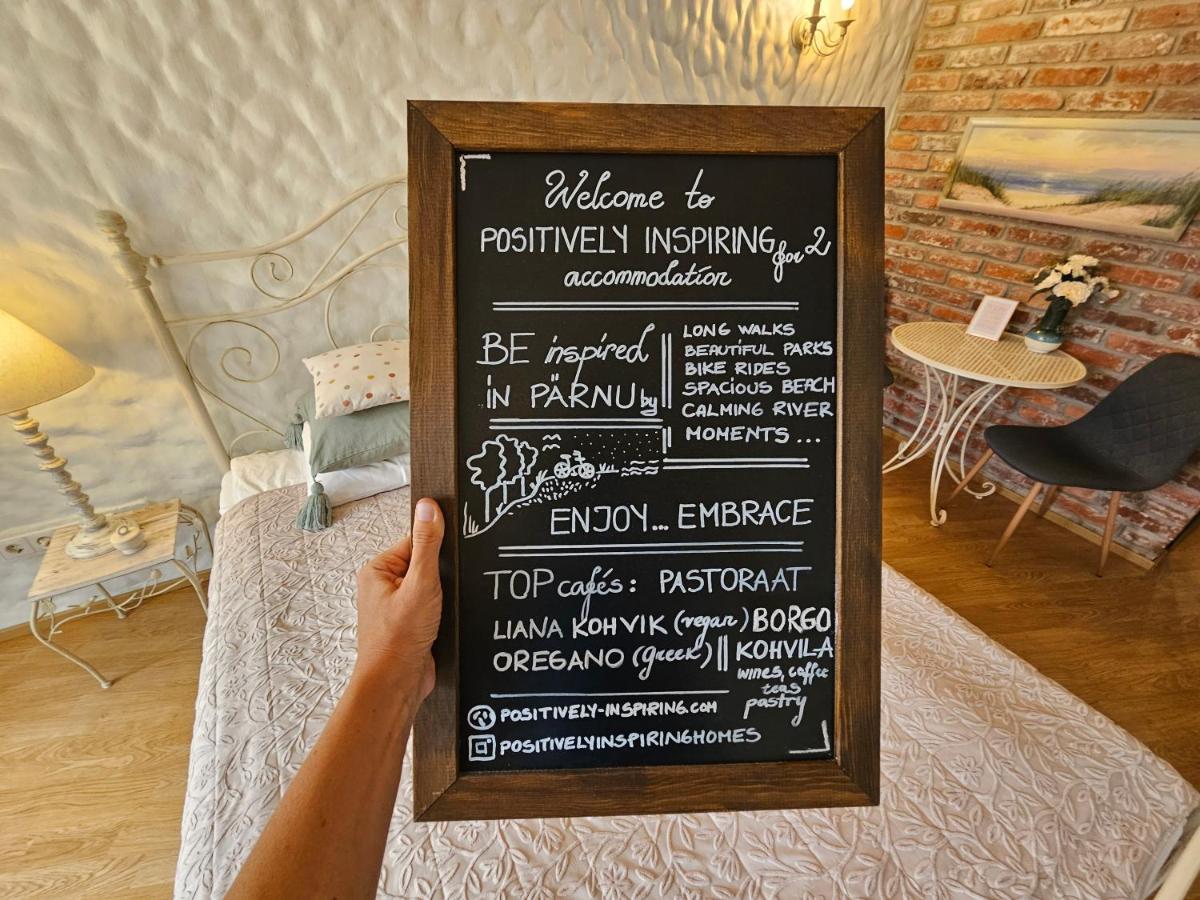 Welcome to
POSITIVELY INSPIRING for 2
accommodation
BE inspired
in PÄRNU by
LONG WALKS
BEAUTIFUL PARKS
BIKE RIDES
SPACIOUS BEACH
CALMING RIVER
MOMENTS ...
ENJOY... EMBRACE
TOP cafés: PASTORAAT
LIANA KOHVIK (vegan) BORGO
OREGANO (greek)
KOHVILA
wines, coffee
teas
pastry
POSITIVELY-INSPIRING.COM
POSITIVELYINSPIRINGHOMES